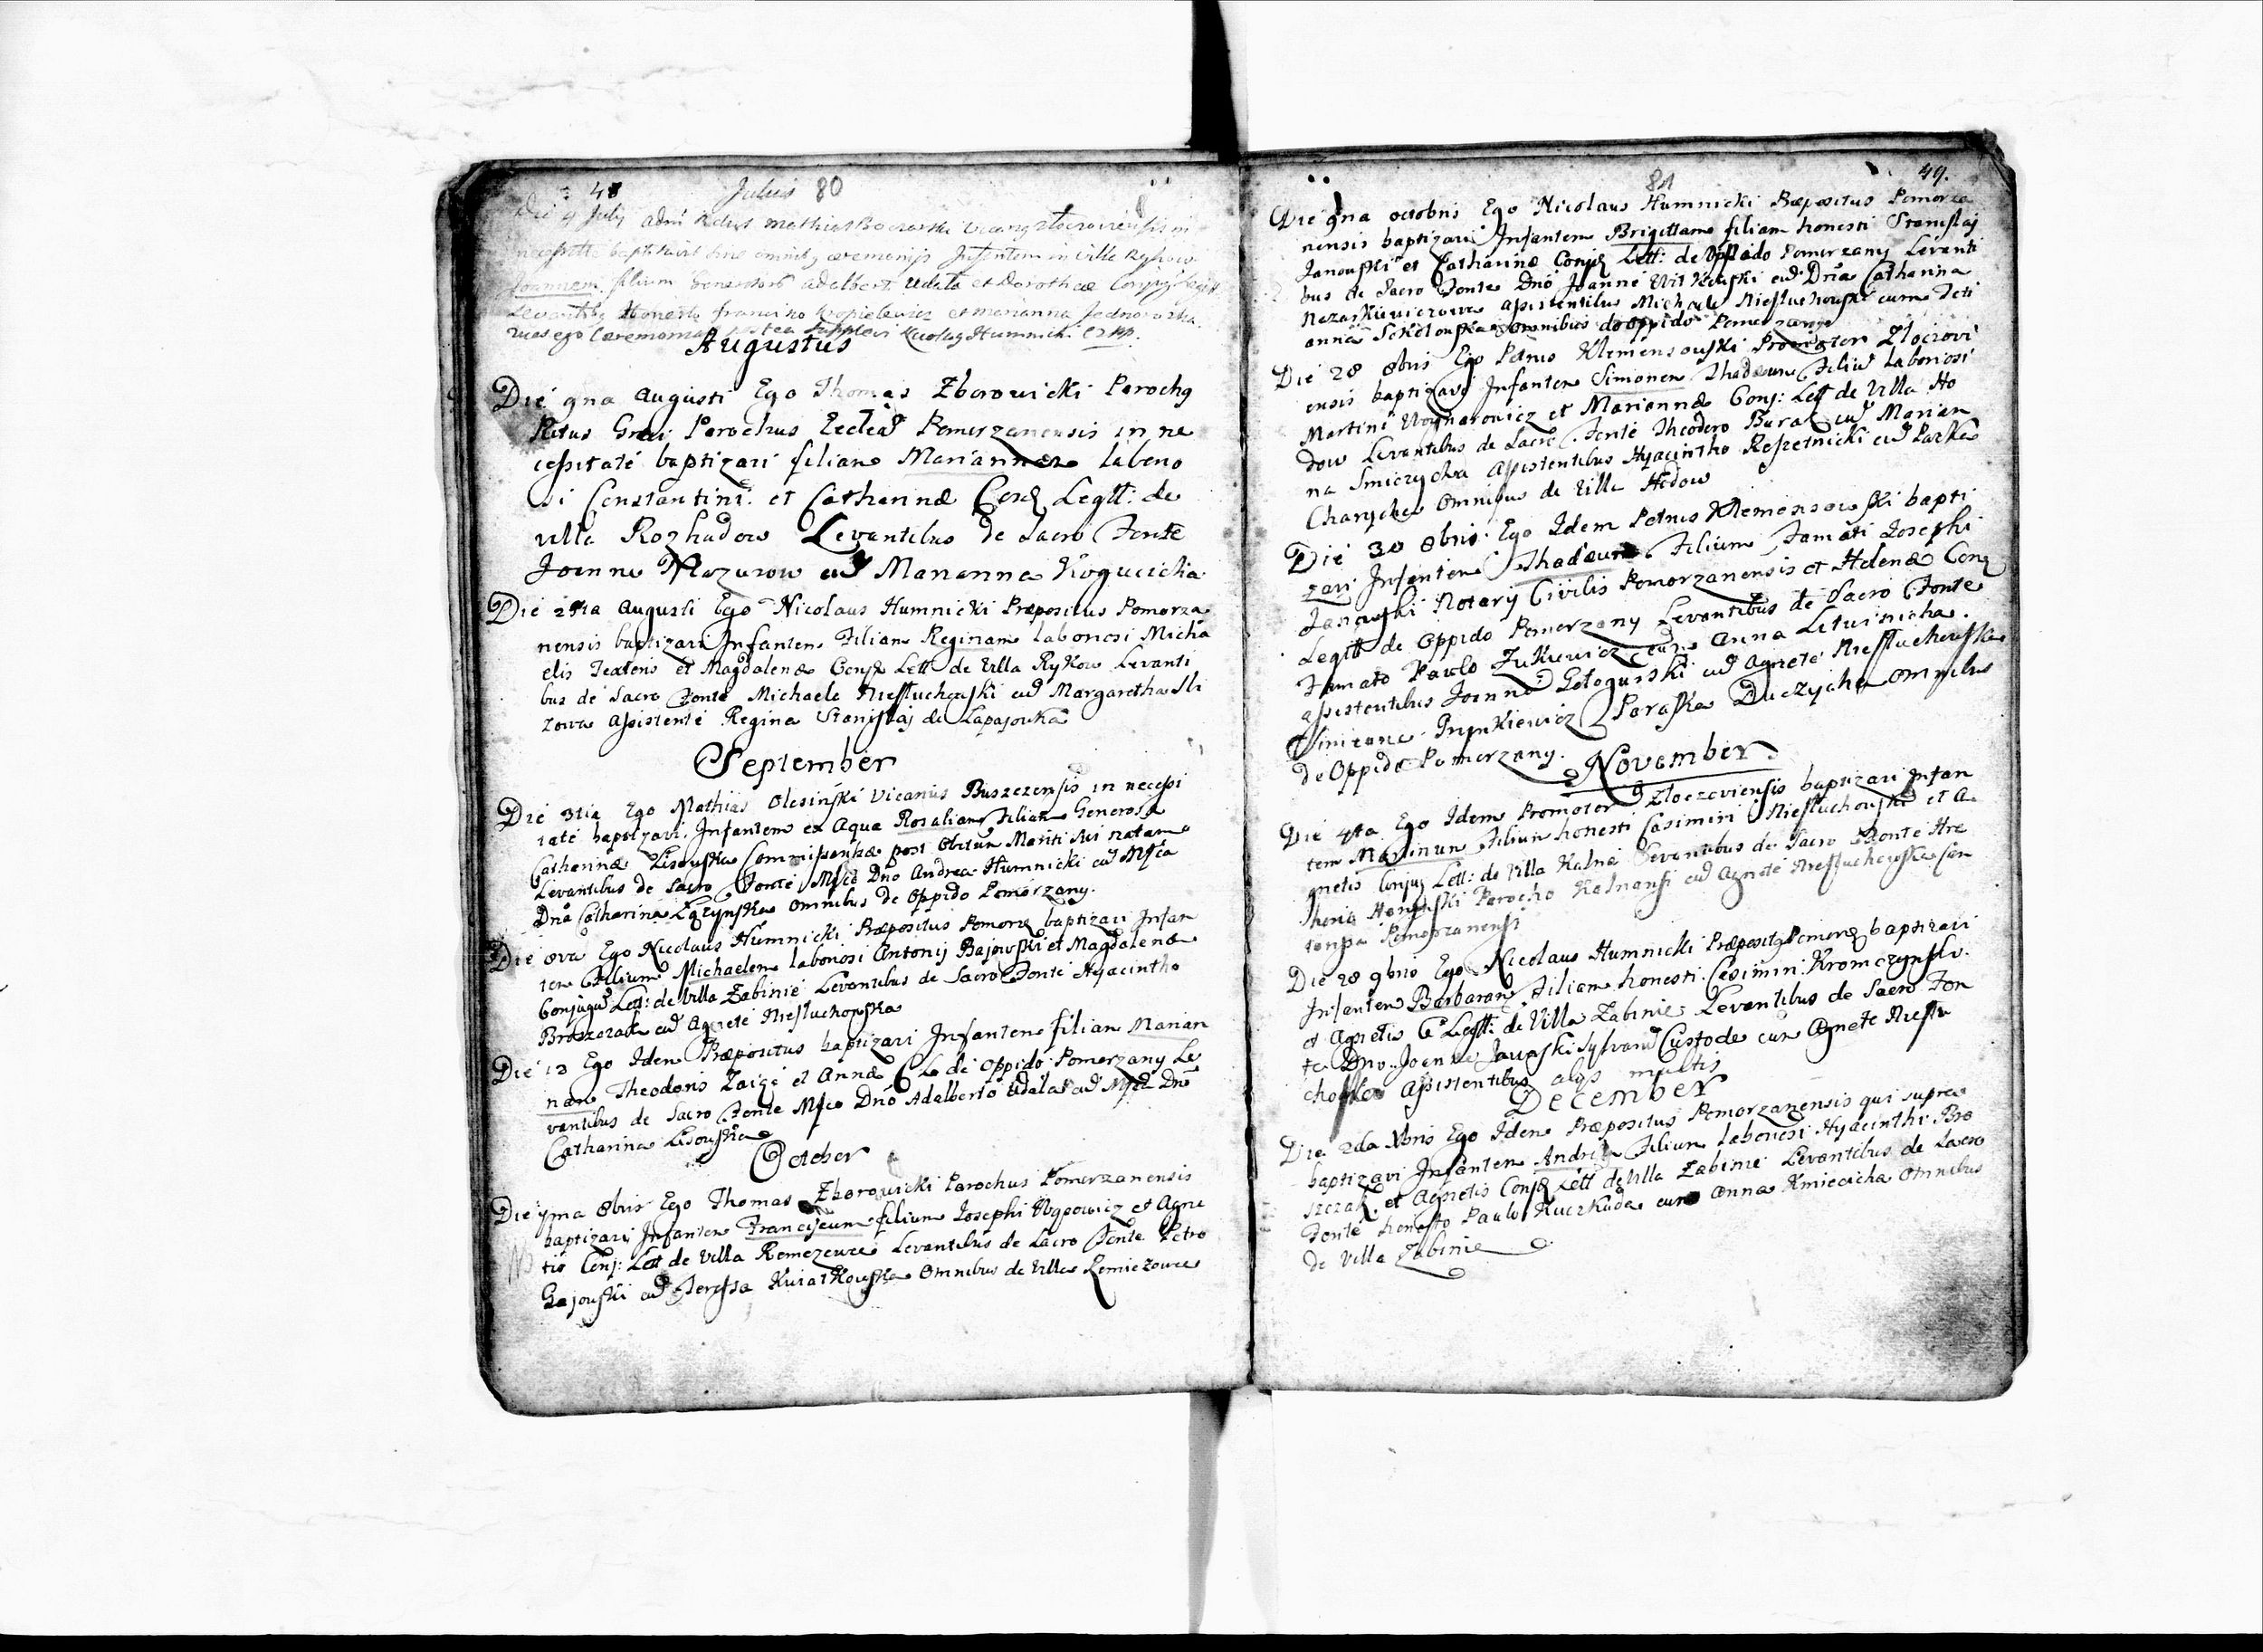 48 Julius 80
Die 4 July adm Rdus Mathias Vicarius
baptisavit sine omnibus ceremonijs Infantem in Villa Rykow
Joannem filium Generosor Adalberti Udala et Dorothea Conjug Legitt
Levantib Honesto francisco Kropielewicz et Marianna
quas ego Ceremonias postea supplevi Nicolaus Humnicki
Augustus
Die 9na Augusti Ego Thomas Zborowicki Parochg
Ritus Graeci Parochus Ecclea Pomorzanensis in ne
cessitate baptizavi filiam Mariannam laborio
si Constantini et Catharinæ Conj Legtt: de
villa Rozhadow Levantibus de Sacro Fonte
Joanne Mazurow cu Marianna Kogucicha
Die 24ta Augusti Ego Nicolaus Humnicki Præpositus Pomorza
nensis baptizavi Infantem Filiam Reginam laboriosi Micha
elis Textoris et Magdalenæ Conju Lett de Villa Rykow Levanti
bus de Sacro Fonte Michaele Niesluchowski cu Margaretha Sli
zowa Assistente Regina Stanislaj de Lapajowka
September
Die 3tia Ego Mathias Olesinski Vicarius Buszczensis in necessi
tate baptizavi Infantem ex Aqua Rosaliam Filiam Generosæ
Catharinæ Lisowska Commissarka post Obitum Mariti Sui natam
Levantibus de Sacro Fonte Mfco Dno Andrea Humnicki cu Mfca
Dna Catharina Lazynska Omnibus de Oppido Pomorzany.
Die 8va Ego Nicolaus Humnicki Præpositus Pomorz baptizavi Infan
tem Filium Michaelem laboriosi Antonij Bajowski et Magdalenæ
Conjugu Lett: de Villa Zabinie Levantibus de Sacro Fonte Hyacintho
Broszczak cu Agnete Niesluchowska
Die 13 Ego Idem Præpositus baptizavi Infantem filiam Marian
nam Theodoris Zaigi et Annæ C Le de Oppido Pomorzany Le
vantibus de Sacro Fonte Mfco Dno Adalberto Udala cu Mfca Dna
Catharina Lisowska
October
Die 7ma 8bris Ego Thomas Zborowicki Parochus Pomorzanensis
baptizavi Infantem Franciscum filium Josephi et Agne
tis Conj: Lett de Villa Remezowce Levantibus de Sacro Fonte Petro
Gajowski cu Teressa Kwiatkowska Omnibus de Villa Remiezowce
81 49.
Die 9na octobris Ego Nicolaus Humnicki Præpositus Pomorza
nensis baptizavi Infantem Brigittam filiam honesti Stanislaj
Janowski et Catharinæ Conju Lett: de Oppido Pomorzany Levanti
bus de Sacro Fonte Dno Joanne Witkowski cu Dna Catharina
Nazarkiewiczowa Assistentibus Michaele Niesluchowski cum Teti
anna Sokolowska Omnibus de Oppido Pomorzany
Die 28 8bris Ego Petrus Klemensowski Promotor Zloczovi
ensis baptizavi Infantem Simonem Thadæum Filiu laboriosi
Martini Woynarowicz et Mariannæ Conj: Lett de Villa Ho
dow Levantibus de Sacro Fonte Theodoro Bural cu Marian
na Smiczycha Assistentibus Hyacintho Reszetnicki cu Parka
Charycka Omnibus de Villa Hodow
Die 30 8bris Ego Idem Petrus Klemensowski bapti
zavi Infantem Thadæum Filium Famati Josephi
Janowski Notarij Civilis Pomorzanensis et Helenæ Conj
Legtt de Oppido Pomorzany Levantibus de Sacro Fonte
Famato Paulo Zukiewicz cum Anna Litwinicha.
Assistentibus Joanne Gologurski cu Agnete Niesluchowska
Simeone Prynkiewicz Paraska Duczycha Omnibus
de Oppido Pomorzany.
November
Die 4ta Ego Idem Promotor Zloczoviensis baptizavi Infan
tem Martinum Filium honesti Casimiri Niesluchowski et A
gnetis Conjug Lett: de Villa Kalne Levantibus de Sacro Fonte Hre
horio Parocho Kalnensi cu Agnete Niesluchowska
Pomorzanensi
Die 28 9bris Ego Nicolaus Humnicki Præposit Pomorz baptizavi
Infantem Barbaram Filiam honesti Casimiri Kromczynski
et Agnetis C Legtt: de Villa Zabinie Levantibus de Sacro Fon
te Dno Joanne Jawaski Sylvaru Custode cum Agnete Nieslu
chowska Assistentibus alijs multis
December
Die 2da Xbris Ego Idem Præpositus Pomorzanensis qui supra
baptizavi Infantem Andream Filium laboriosi Hyacinthi Bro
szczak et Agnetis Conju Lett de Villa Zabinie Levantibus de Sacro
Fonte honesto Paulo Kuczkuda cum Anna Kmiecicha Omnibus
de Villa Zabinie